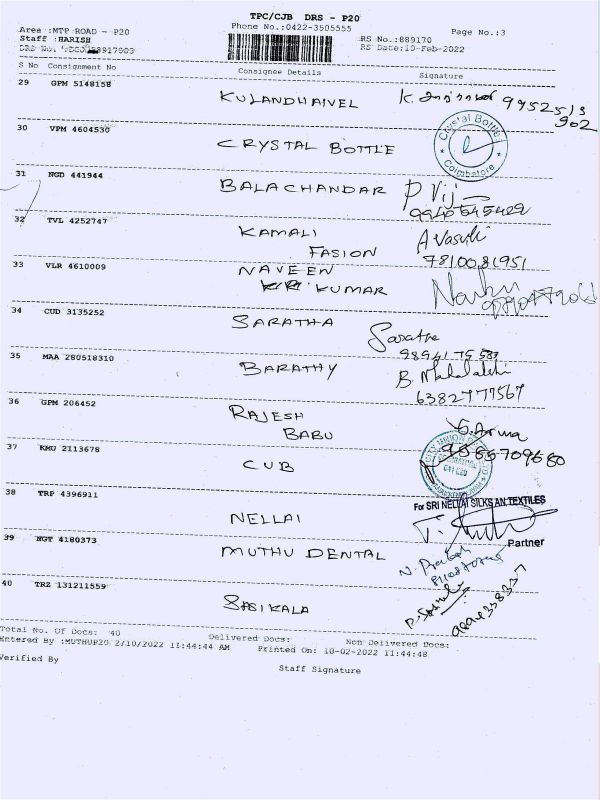 TPC/CJB DRS - P20
Phone No.:0422-3505555
Page No.:3
Area :MTP ROAD - P20
Staff :HARISH
DRS No.
RS No.:889170
RS Date:10-Feb-2022
S No Consignment No Consignee Details Signature
29 GPM 5148158 KULANDHAIVEL K. 9952513
902
30 VPM 4604530 CRYSTAL BOTTLE Crystal Bottle
Coimbatore
31 NGD 441944 BALACHANDAR P Vij
32 TVL 4252747 KAMALI
FASION
A Vasuki
7810081951
33 VLR 4610009 NAVEEN
KUMAR
34 CUD 3135252 SARATHA Saratha
35 MAA 280518310 BARATHY B. Mahalakshi
6382777567
36 GPM 206452 RAJESH
BABU
37 KMU 2113678 CUB CITY UNION
38 TRP 4396911 NELLAI For SRI NELLAI SILKS AN TEXTILES
Partner
39 NGT 4180373 MUTHU DENTAL N. Prakash
40 TRZ 131211559 SASIKALA
Total No. Of Docs: 40 Delivered Docs: Non Delivered Docs:
Entered By :MUTHUP20 2/10/2022 11:44:44 AM Printed On: 10-02-2022 11:44:48
Verified By
Staff Signature